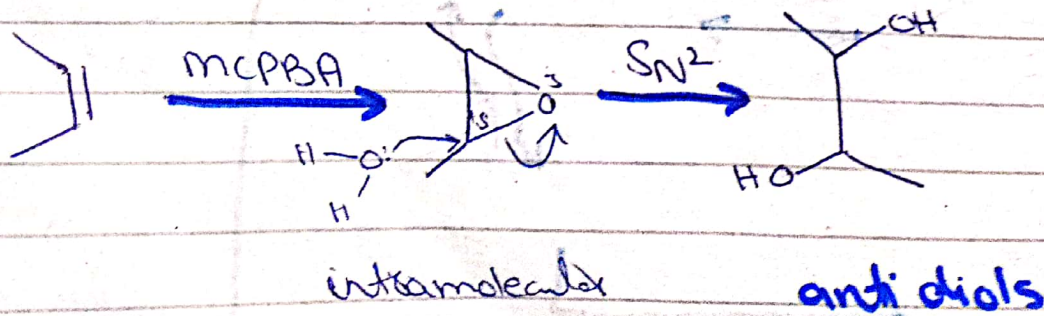 mCPBA
SN2
OH
O
H-O:
H
HO
intramolecular
anti diols